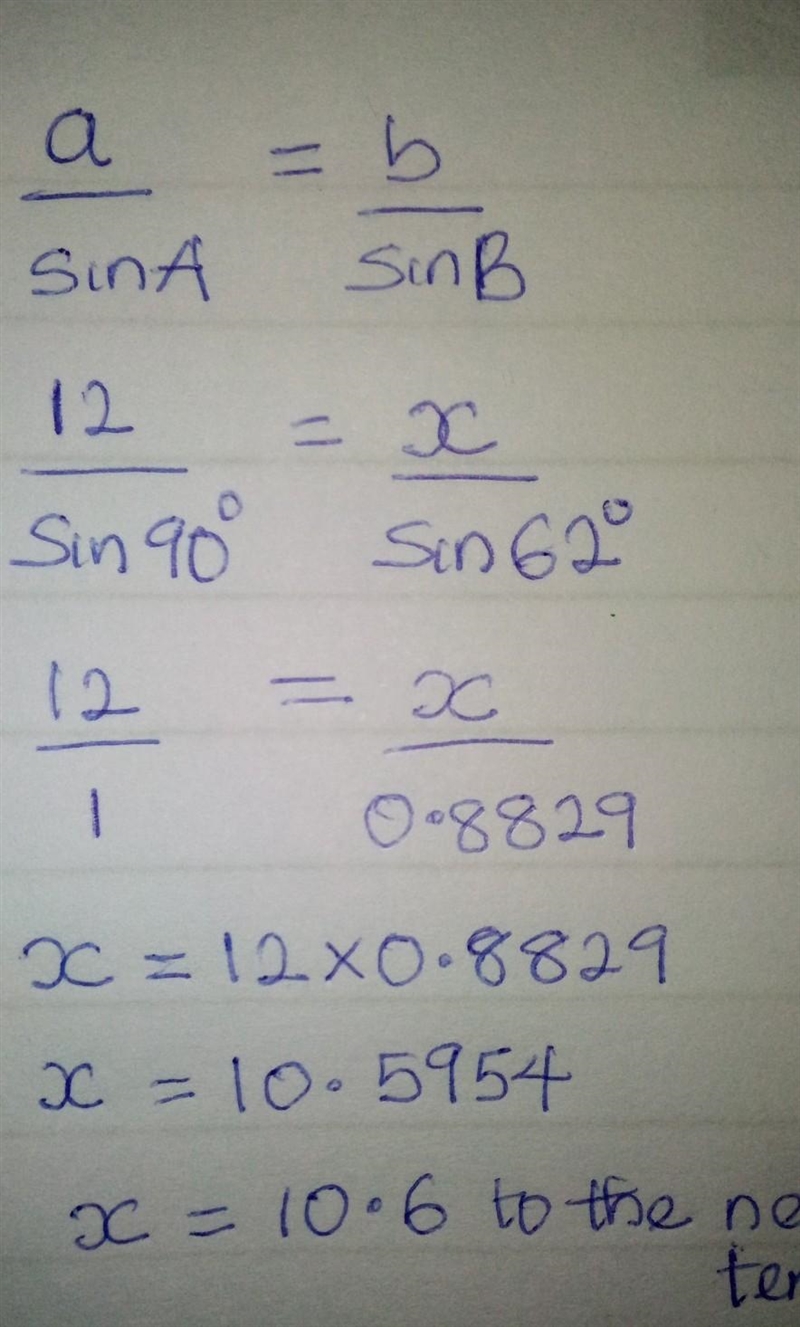 a = b
sinA sinB
12 = x
Sin 90° sin 62°
12 = x
1 0.8829
x = 12 × 0.8829
x = 10.5954
x = 10.6 to the